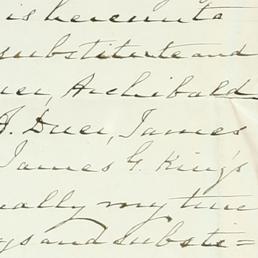 is hereunto
substitute and
uer, Archibald
A. Duer, James
James G. King's
ually my true
ys and substi=